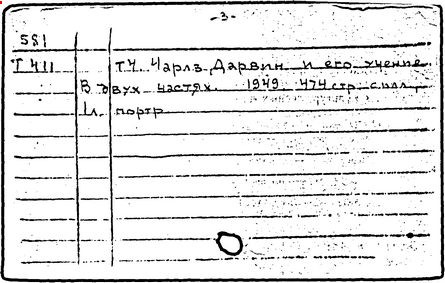 -3-
581
Т 411 Т.Ч. Чарлз Дарвин и его учение
В двух частях. 1949. 474 стр. с илл.,
1л. портр